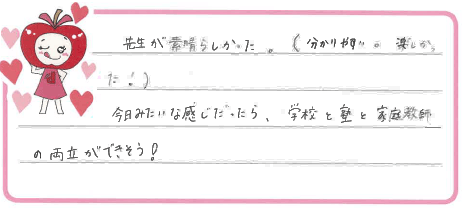 先生が素晴らしかった。(分かりやすい。楽しかっ
た!)
今日みたいな感じだったら、学校と塾と家庭教師
の両立ができそう!